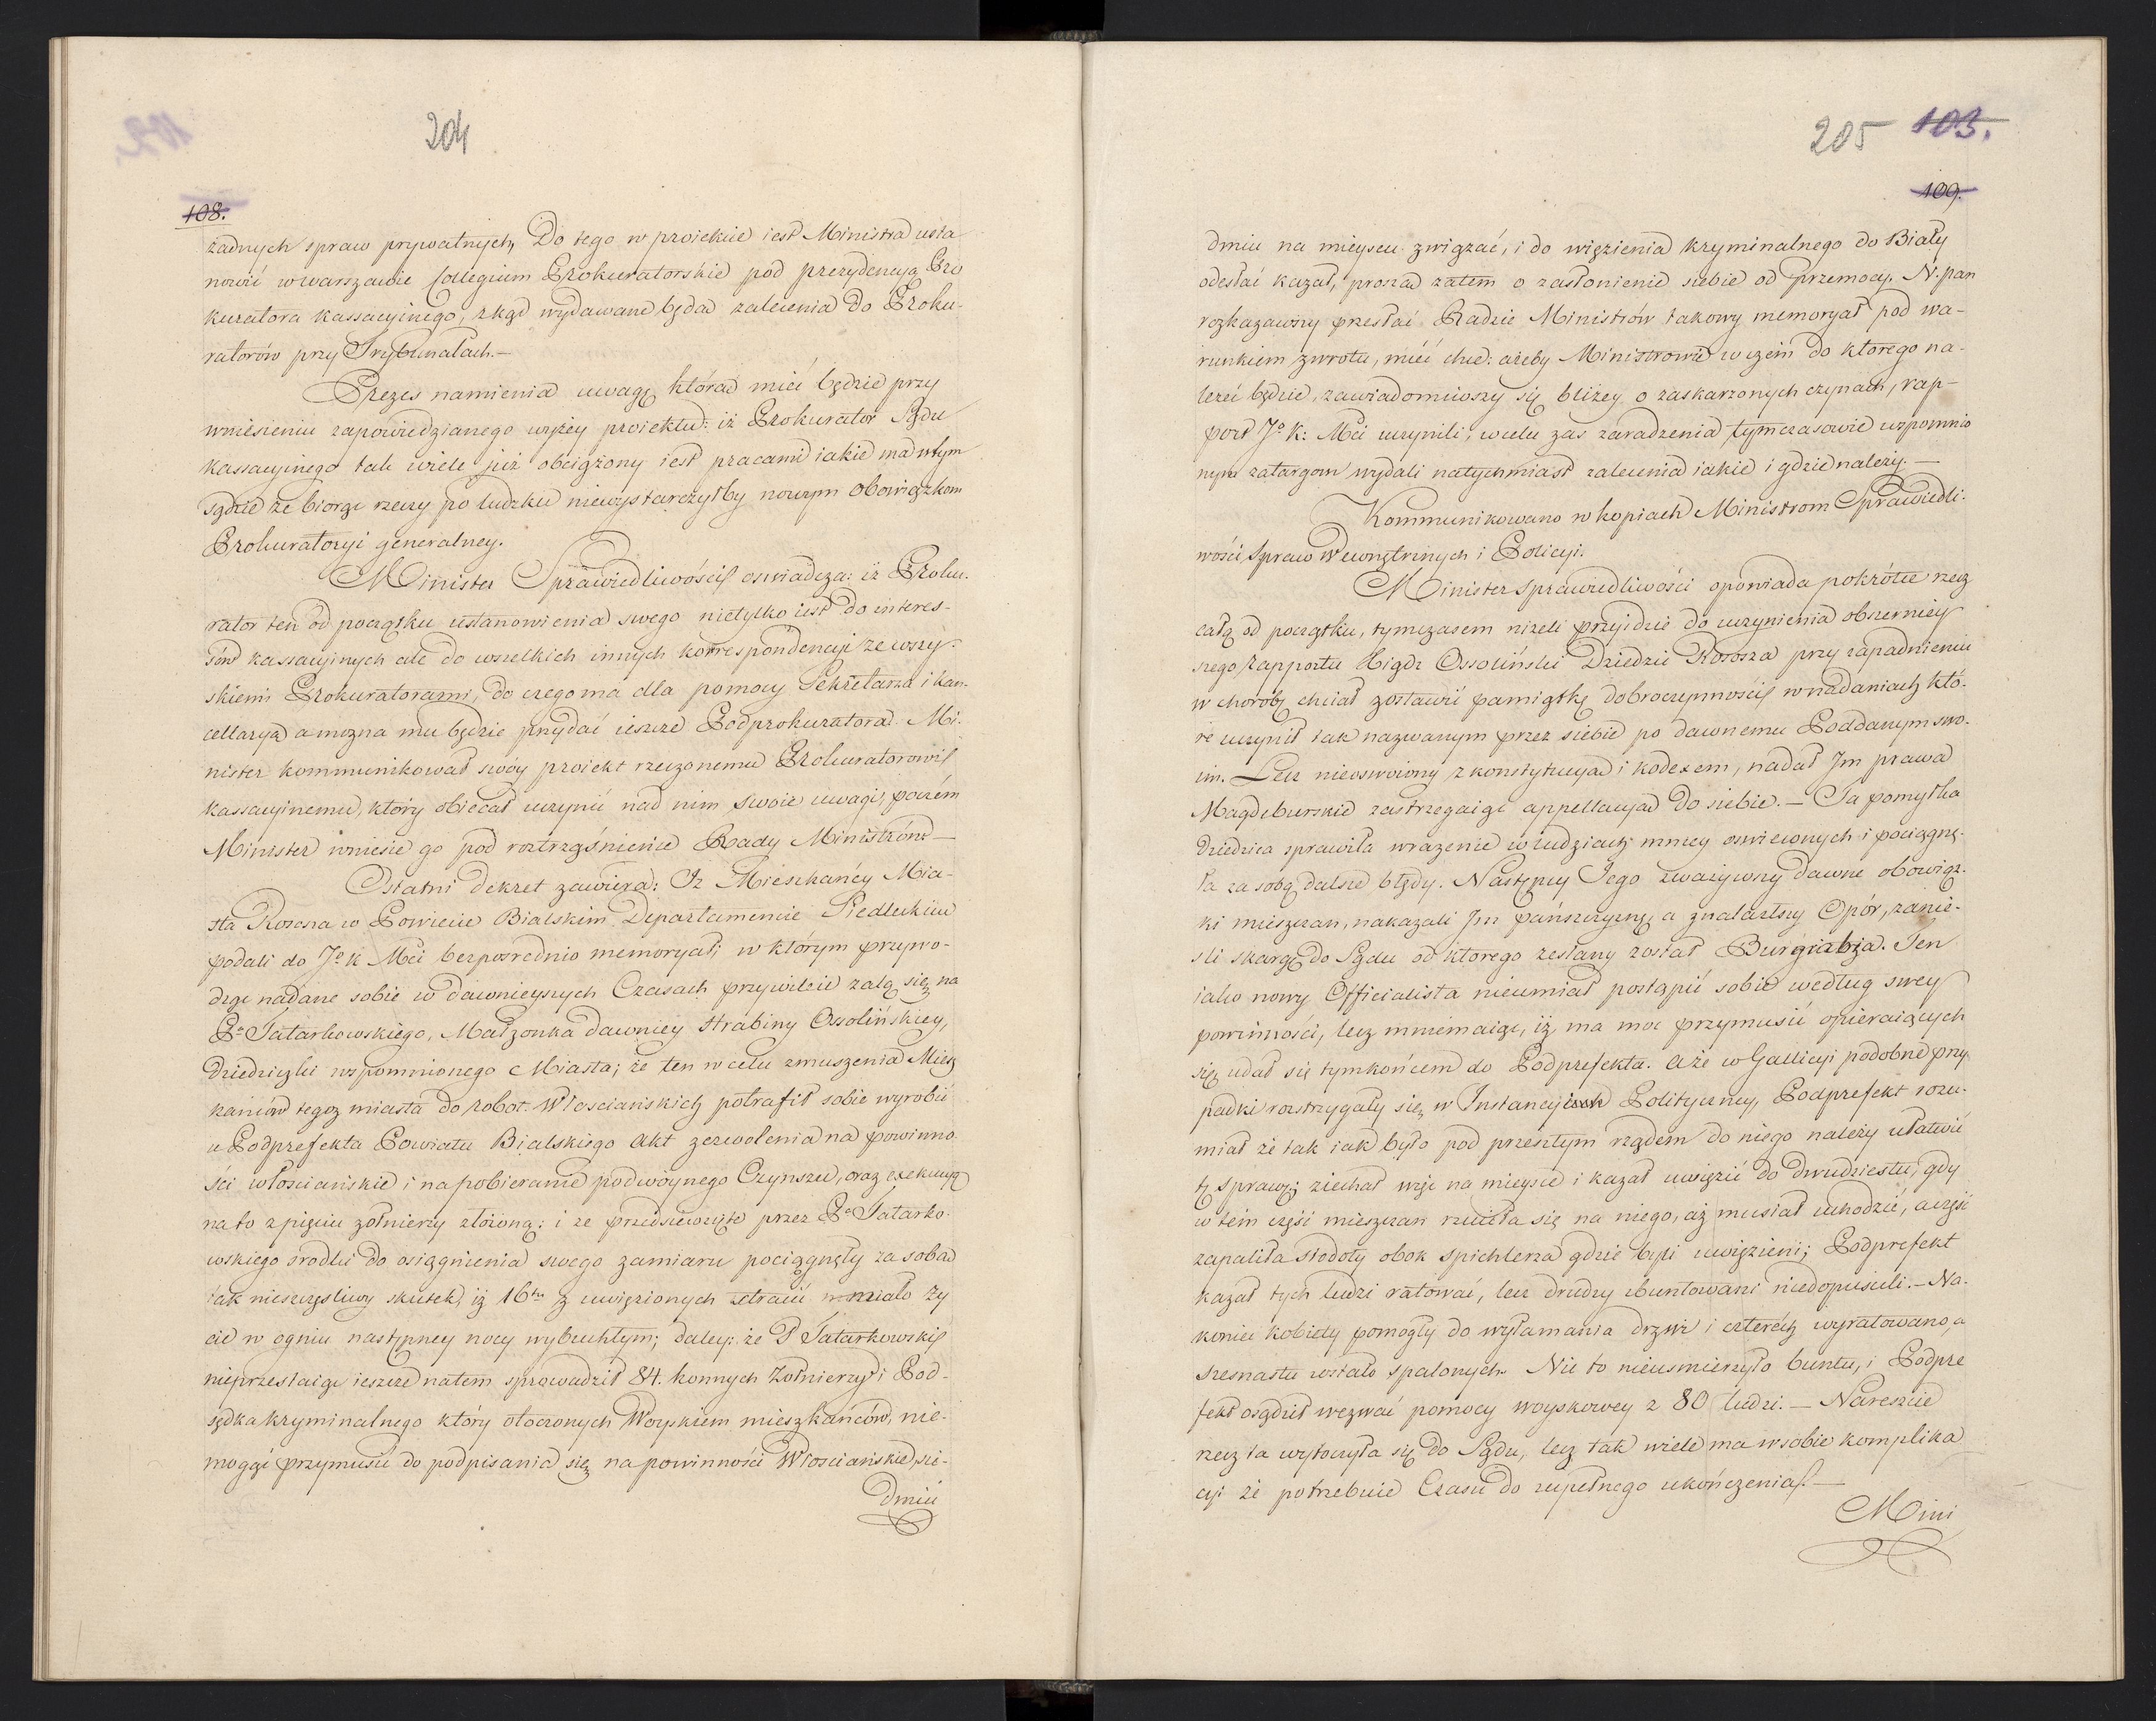 204
108.
żadnych spraw prywatnych, Do tego w proiekcie iest Ministra usta
nowić w warszawie Collegium Prokuratorskie pod prezydencyą Pro
kuratora kassacyinego, zkąd wydawane będą zalecenia do Proku-
ratorów przy Trybunałach.—
Prezes namienia uwagę którą mieć będzie przy
wniesieniu zapowiedzianego wyżey proiektu: iż Prokurator Sądu
kassacyinego tak wiele już obciążony iest pracami iakie ma w tym
sądzie że biorąc rzeczy po ludzku niewystarczyłby nowym obowiązkom
Prokuratoryi generalney.
Minister Sprawiedliwości oswiadcza: iż Proku-
rator ten od początku ustanowienia swego nietylko iest do interes-
sów kassacyinych ale do wszelkich innych korrespondencyi ze wszy-
skiemi Prokuratorami, do czego ma dla pomocy Sekretarza i kan-
cellaryą a mozna mu będzie przydać ieszcze Podprokuratora. Mi-
nister kommunikował swóy proiekt rzeczonemu Prokuratorowi
kassacyinemu, który obiecał uczynić nad nim swoie uwagi, poczém
Minister wniesie go pod roztrząśnienie Rady Ministrów—
Ostatni dekret zawiera: Iż Mieszkańcy Mia-
sta Rososza w Powiecie Bialskim Departamencie Siedleckim
podali do Jo k Mci bezpośrednio memoryał, w którym przywo-
dząc nadane sobie w dawnieyszych Czasach przywileie żalą się na
Pa Tatarkowskiego, Małżonka dawniey Hrabiny Ossolińskiey,
Dziedziczki wspomnionego Miasta; że ten w celu zmuszenia Miesz
kańców tegoż miasta do robot Włosciańskich potrafił sobie wyrobić
u Podprefekta Powiatu Bialskiego akt zezwolenia na powinno-
ści włosciańskie i na pobieranie podwóynego Czynszu, oraz exekucyą
na to z pięciu żołnierzy złożoną: i że przedsiewzięte przez Pa Tatarko-
wskiego środki do osiągnienia swego zamiaru pociągnęły za sobą
tak nieszczęsliwy skutek, iż 16tu z uwięzionych stracić miało ży
cie w ogniu następney nocy wybuchłym; daley: że P Tatarkowski
nieprzestaiąc ieszcze na tem sprowadził 84. konnych Żołnierzy i Pod-
sędka kryminalnego który otoczonych Woyskiem mieszkańców, nie-
mogąc przymusić do podpisania się na powinności Włosciańskie, sie-
dmiu
205 103.
109.
dmiu na mieyscu związać, i do więzienia kryminalnego do Biały
odesłać kazał, proszą zatem o zasłonienie siebie od przemocy. N. pan
rozkazawszy przesłać Radzie Ministrów takowy memoryał pod wa-
runkiem zwrotu, mieć chce: ażeby Ministrowie w czem do ktorego na-
leżeć będzie, zawiadomiwszy się bliżey o zaskarżonych czynach, rap-
port Jo K: Mci uczynili, w celu zas zaradzenia tymczasowie wspomnio
nym zatargom wydali natychmiast zalecenia iakie i gdzie należy.—
Kommunikowano w kopiach Ministrom Sprawiedli-
wości, Spraw Wewnętrznych i Policyi.
Minister sprawiedliwości opowiada pokrótce rzecz
całą od początku, tymczasem niżeli przyidzie do uczynienia obszerniey
szego Rapportu Xiądz Ossoliński Dziedzic Rososza przy zapadnieniu
w chorobę chciał zostawić pamiątkę dobroczynności w nadaniach któ-
re uczynił tak nazwanym przez siebie po dawnemu Poddanym swo-
im. Lecz nieoswoiony z konstytucyą i kodexem, nadał Im prawa
Magdeburskie zastrzegaiąc appellacyą do siebie.— Ta pomyłka
Dziedzica sprawiła wrażenie w ludziach mniey oswieconych i pociągnę-
ła za sobą dalsze błędy. Następcy Jego zważywszy dawne obowiąz-
ki mieszczan, nakazali Im pańszczyznę, a znalazłszy Opór, zanie-
sli skargę do Sądu od ktorego zesłany został Burgrabia. Ten
iako nowy Officialista nieumiał postąpić sobie według swey
powinności, lecz mniemaiąc, iż ma moc przymusić opieraiących
się udał się tymkońcem do Podprefekta. a że w Gallicyi podobne przy
padki rozstrzygały się w Instancyiach Polityczney, Podprefekt rozu-
miał że tak iak było pod przeszłym rządem do niego należy ułatwić
tę sprawę; ziechał więc na mieysce i kazał uwięzić do dwudziestu, gdy
w tem część mieszczan rzuciła się na niego, aż musiał uchodzić, a część
zapaliła stodoły obok spichlerza gdzie byli uwięzieni; Podprefekt
kazał tych ludzi ratować, lecz drudzy zbuntowani niedopuscili.— Na-
koniec kobiety pomogły do wyłamania drzwi i czterech wyratowano, a
szesnastu zostało spalonych. Nic to nieusmierzyło buntu, i Podpre
fekt osądził wezwać pomocy woyskowey z 80 ludzi.— Nareszcie
rzecz ta wytoczyła się do Sądu, lecz tak wiele ma w sobie komplika
cyi że potrzebuie Czasu do zupełnego ukończenia.—
Mini